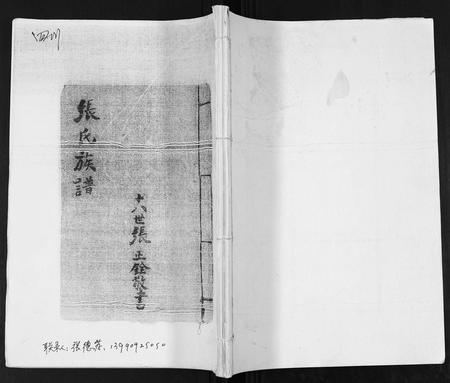 四川
張氏族譜
十八世張正銓敬書
联系人：张德荣，13990925050